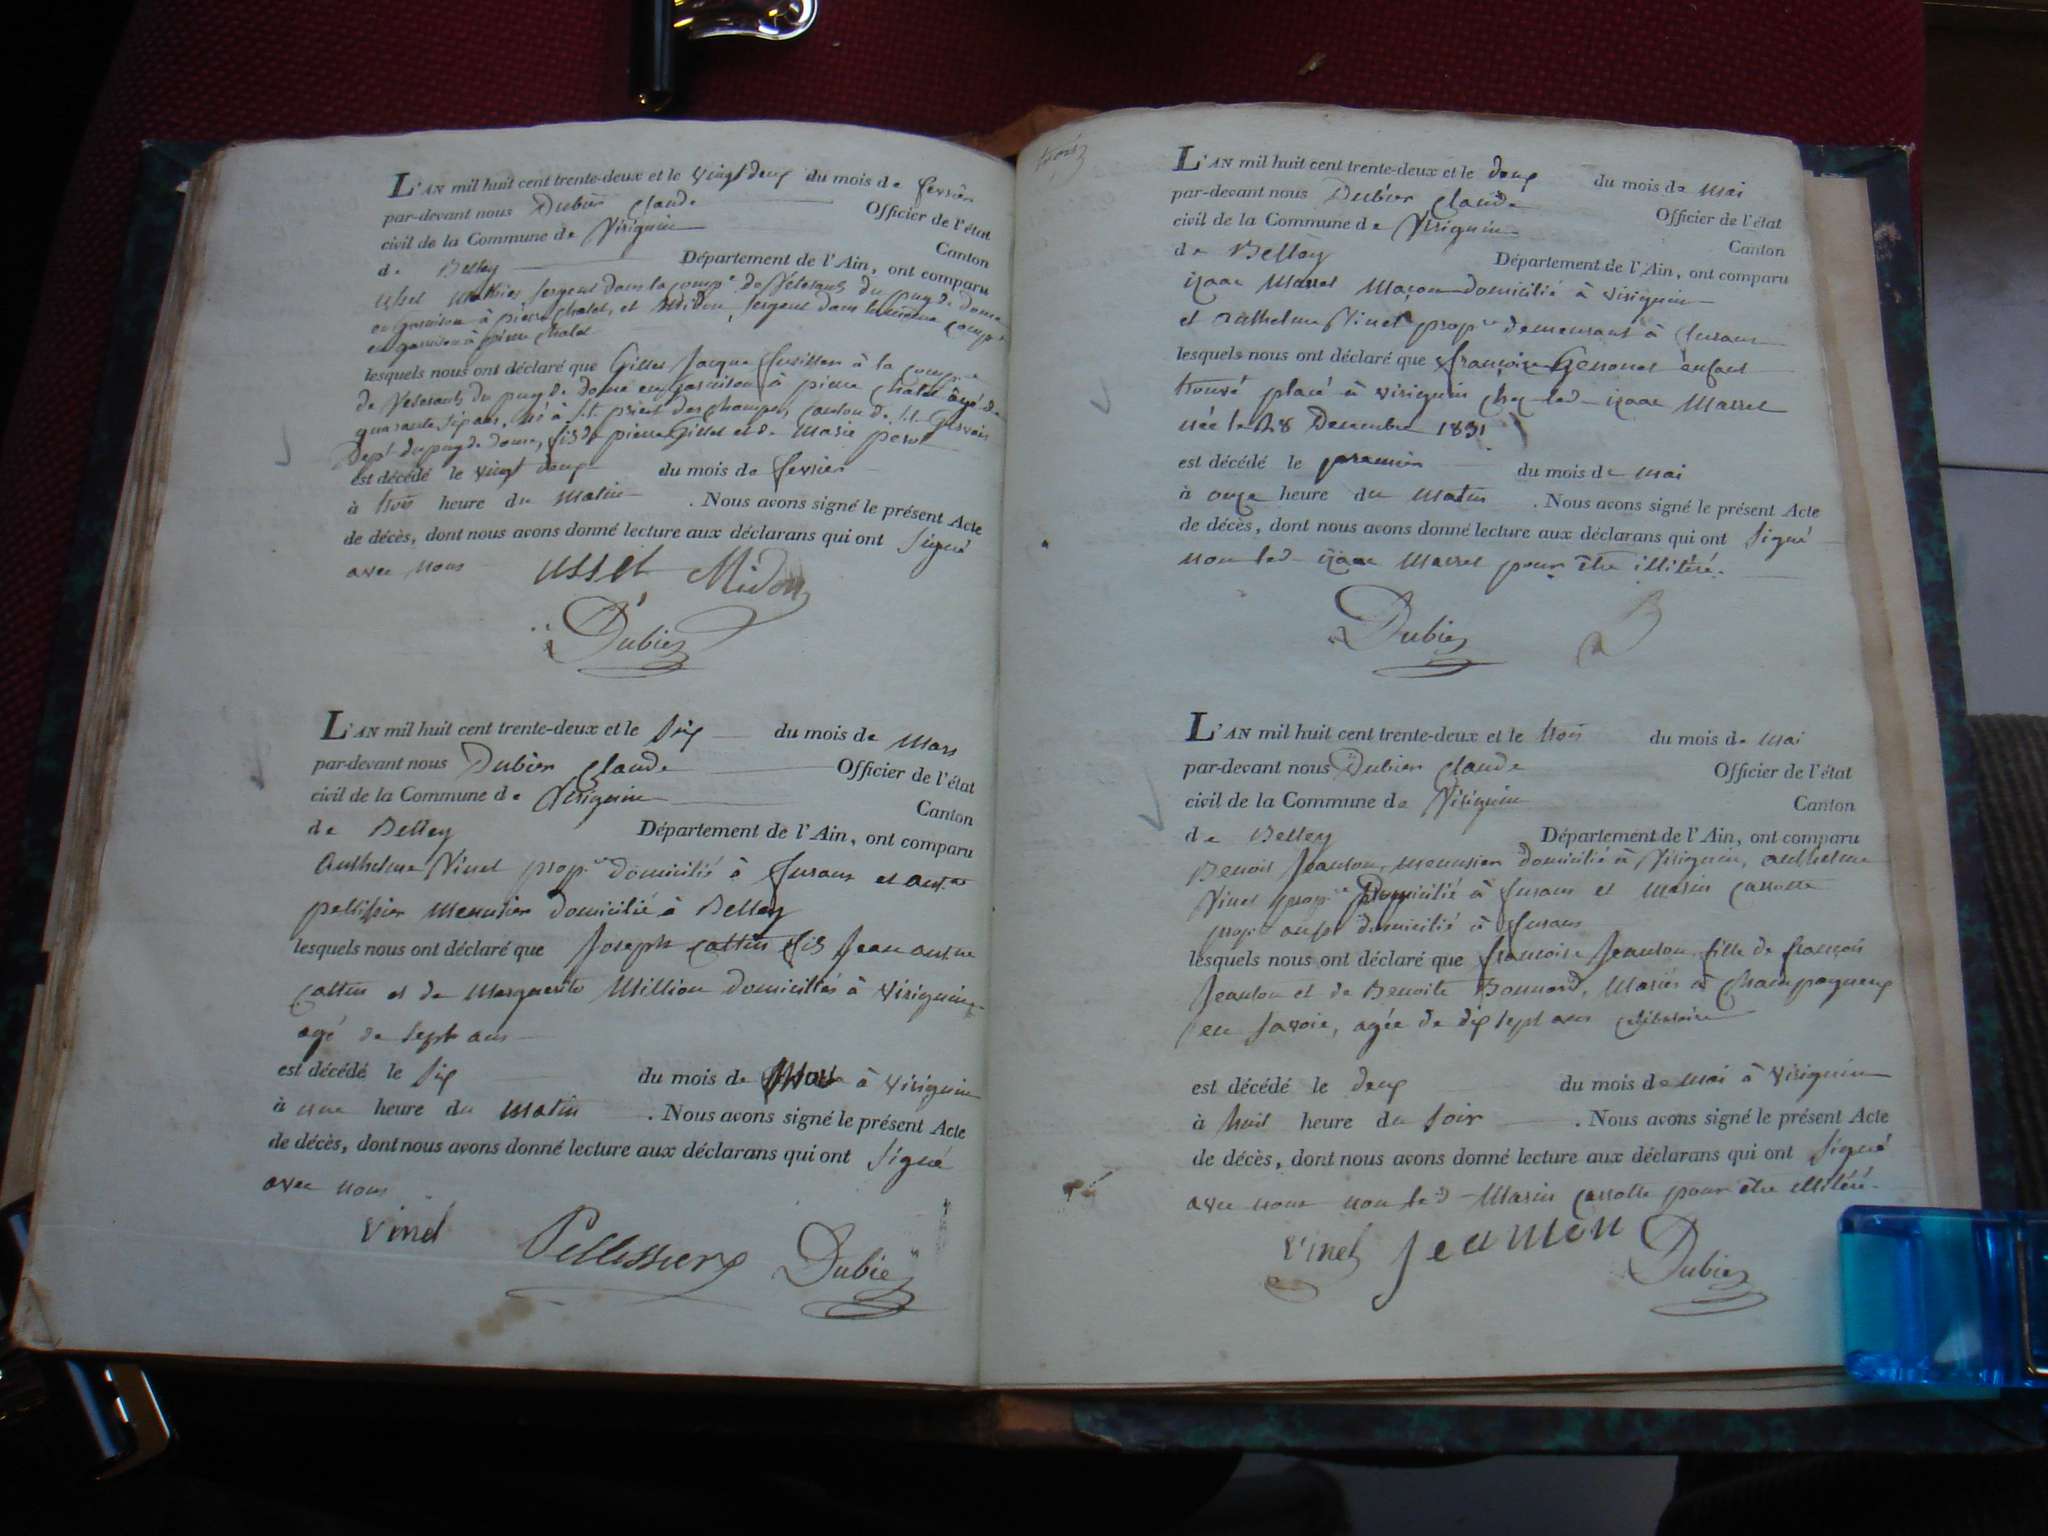 L'AN mil huit cent trente-deux et le vingt deux du mois de fevrier
par-devant nous Dubier Claude Officier de l'état
civil de la Commune de Virignin Canton
de Belley Département de l'Ain, ont comparu
Usset Mathieu, sergent dans la comp.e de Véterans du puy de dome
en garnison à pierre chatel, et Midon, sergent dans la même comp.e
en garnison à pierre chatel
lesquels nous ont déclaré que Gilles Jacque fusillier à la comp.e
de Veterans du puy de dome en garnison à pierre Chatel âgé de
quarante six ans, né à St. priest des champs, canton de St. Gervais
Dept. du puy de dome, fils de pierre Gilles et de Marie
est décédé le vingt deux du mois de fevrier
à trois heure du Matin . Nous avons signé le présent Acte
de décès, dont nous avons donné lecture aux déclarans qui ont signé
avec nous
Usset Midon
Dubier
L'AN mil huit cent trente-deux et le six du mois de Mars
par-devant nous Dubier Claude Officier de l'état
civil de la Commune de Virignin Canton
de Belley Département de l'Ain, ont comparu
Anthelme Vinet prop.re domicilié à furans et ant.ne
pellissier Menusier domicilié à Belley
lesquels nous ont déclaré que Joseph Cattin fils Jean ant.ne
Cattin et de Marguerite Million domiciliés à Virignin
agé de sept ans
est décédé le six du mois de Mars à Virignin
à une heure du Matin . Nous avons signé le présent Acte
de décès, dont nous avons donné lecture aux déclarans qui ont signé
avec nous
Vinet Pellissier Dubier
L'AN mil huit cent trente-deux et le deux du mois de Mai
par-devant nous Dubier Claude Officier de l'état
civil de la Commune de Virignin Canton
de Belley Département de l'Ain, ont comparu
izaac Massel Maçon domicilié à Virignin
et anthelme Vinet prop.re demeurant à furans
lesquels nous ont déclaré que françoise enfant
trouvé placé à virignin chez led. izaac Massel
née le 28 Decembre 1831
est décédé le premier du mois de Mai
à onze heure du Matin . Nous avons signé le présent Acte
de décès, dont nous avons donné lecture aux déclarans qui ont signé
non led. izaac Massel pour être illitéré.
Dubier
L'AN mil huit cent trente-deux et le trois du mois de Mai
par-devant nous Dubier Claude Officier de l'état
civil de la Commune de Virignin Canton
de Belley Département de l'Ain, ont comparu
Benoit Jeanton, menusier domicilié à Virignin, anthelme
Vinet prop.re Domicilié à furans et Marin Cassotte
prop.re aussi domicilié à furans
lesquels nous ont déclaré que françoise Jeanton, fille de françois
Jeanton et de Benoite Bonnard, Mariés à Champagneux
en savoie, agée de dix sept ans célibataire
est décédé le deux du mois de Mai à Virignin
à huit heure du soir . Nous avons signé le présent Acte
de décès, dont nous avons donné lecture aux déclarans qui ont signé
avec nous non led. Marin Cassotte pour être illitéré.
Vinet Dubier